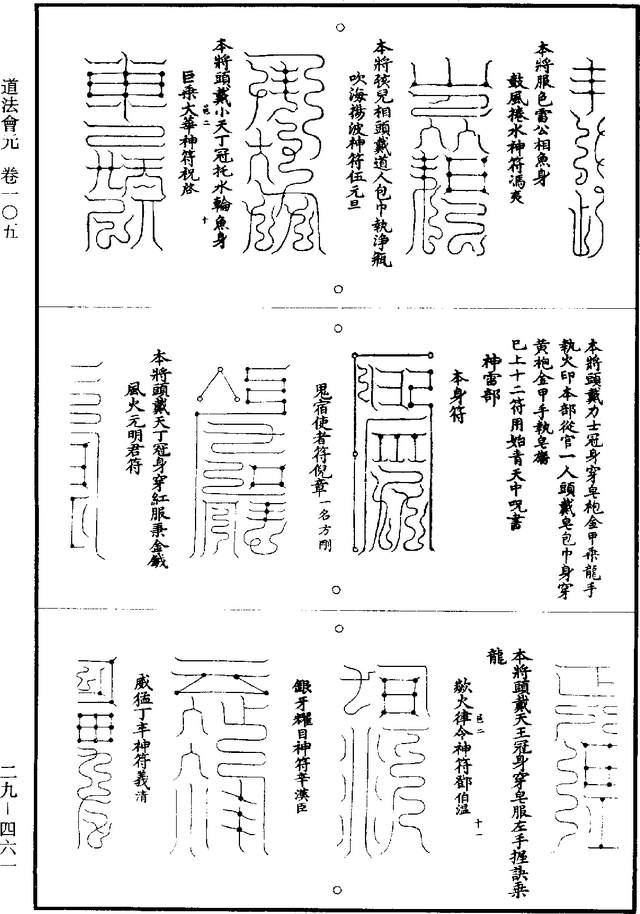 道法會元　卷一〇五
二九—四六一
本將服色雷公相魚身
鼓風捲水神符馮夷
本將孩兒相頭戴道人包巾執淨瓶
吹海揚波神符伍元旦
本將頭戴小天丁冠托水輪魚身
邑二　十
巨乘大華神符祝啓
本將頭戴力士冠身穿皂袍金甲乘龍手
執火印本部從官一人頭戴皂包巾身穿
黃袍金甲手執皂旛
已上十二符用始青天中呪書
神雷部
本身符
鬼宿使者符倪章一名方剛
本將頭戴天丁冠身穿紅服秉金鉞
風火元明君符
本將頭戴天王冠身穿皂服左手握訣乘
龍
歘火律令神符鄧伯温
邑二　十一
銀牙耀目神符辛漢臣
威猛丁辛神符義清